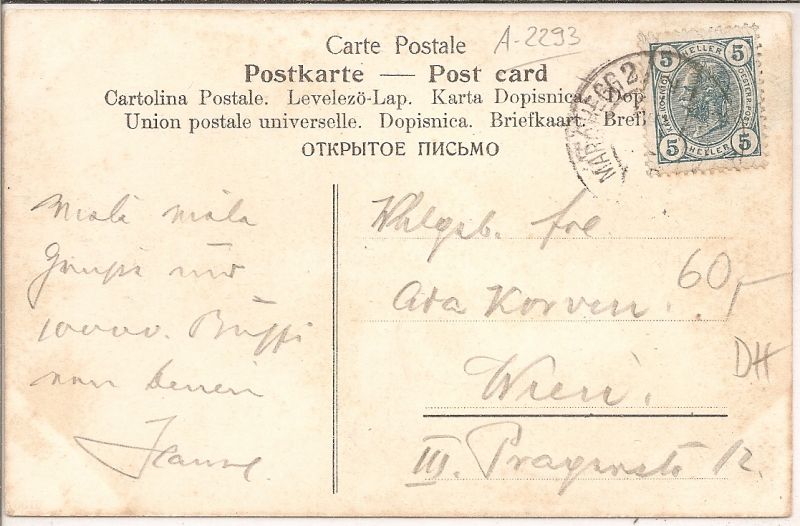 Carte Postale
A-2293
Postkarte — Post card
Cartolina Postale. Levelezö-Lap. Karta Dopisnica. Dop
Union postale universelle. Dopisnica. Briefkaart. Bref
ОТКРЫТОЕ ПИСЬМО
5 HELLER 5
5 HELLER 5
Viele viele
und
10000.
von deinem
Wohlgeb. frl
Ada Korven.
60,-
DH
Wien.
III. Pragerstr 12.